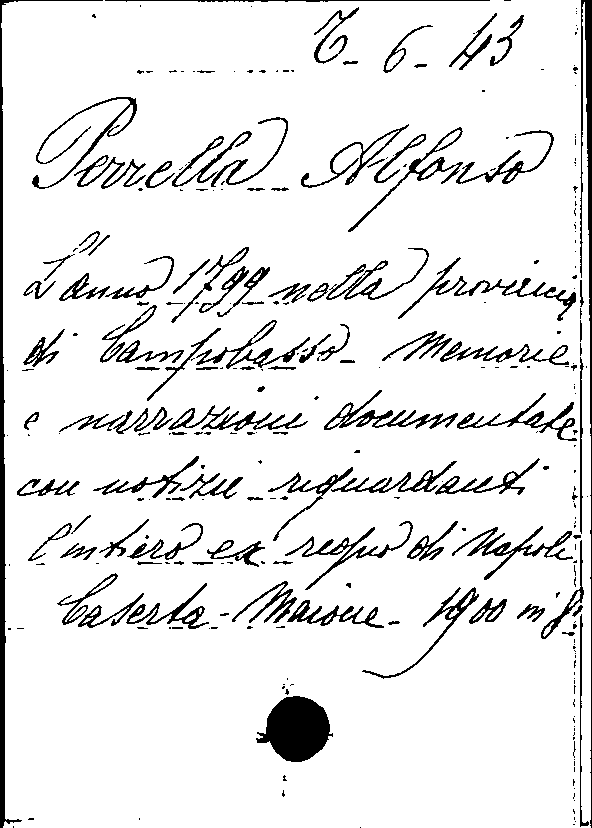 6-43
Perrella Alfonso
L'anno 1799 nella provincia
di Campobasso- Memorie
e narrazioni documentate
con notizie riguardanti
l'intiero ex regno di Napoli
Caserta- Maione- 1900 in 8º